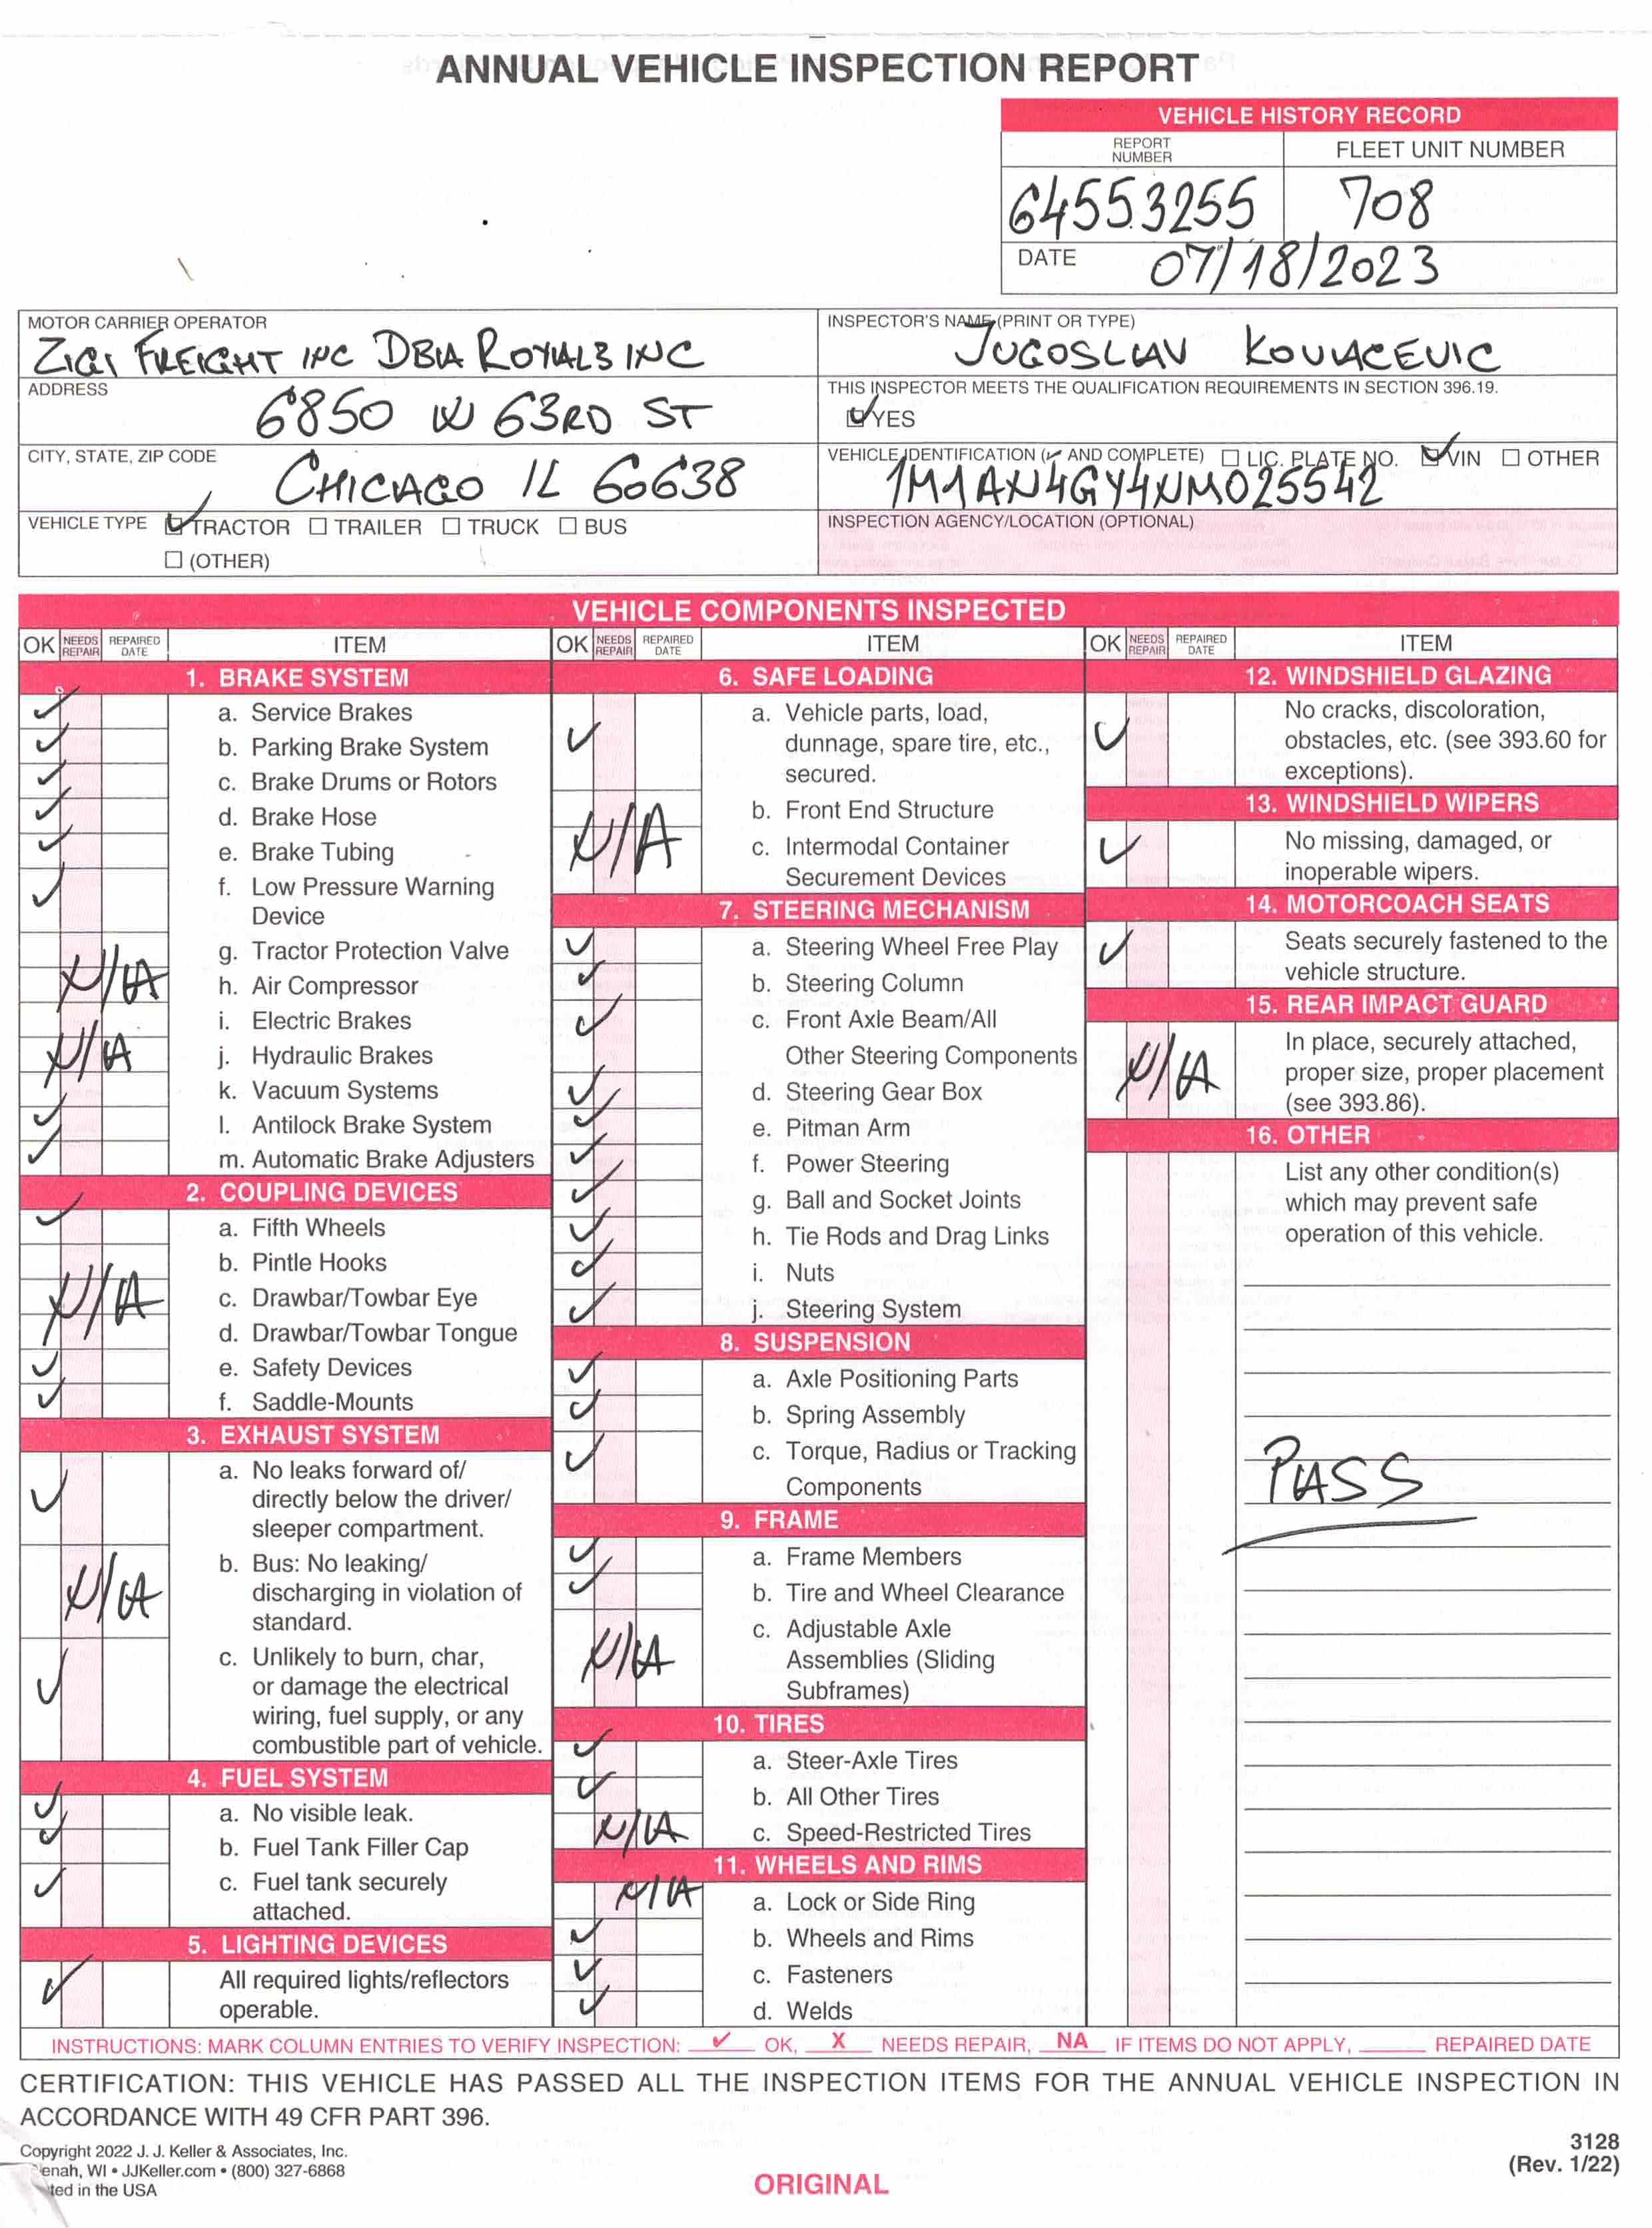 ANNUAL VEHICLE INSPECTION REPORT
VEHICLE HISTORY RECORD
REPORT NUMBER
FLEET UNIT NUMBER
64553255
708
DATE 07/18/2023
MOTOR CARRIER OPERATOR
ZIGI FREIGHT INC DBA ROYAL3 INC
ADDRESS
6850 W 63RD ST
CITY, STATE, ZIP CODE
CHICAGO IL 60638
VEHICLE TYPE ✓ TRACTOR ☐ TRAILER ☐ TRUCK ☐ BUS
☐ (OTHER)
INSPECTOR'S NAME (PRINT OR TYPE)
JUGOSLAV KOVACEVIC
THIS INSPECTOR MEETS THE QUALIFICATION REQUIREMENTS IN SECTION 396.19.
✓ YES
VEHICLE IDENTIFICATION (✓ AND COMPLETE) ☐ LIC. PLATE NO. ✓ VIN ☐ OTHER
1M1AN4GY4NM025542
INSPECTION AGENCY/LOCATION (OPTIONAL)
VEHICLE COMPONENTS INSPECTED
OK NEEDS REPAIR REPAIRED DATE ITEM
1. BRAKE SYSTEM
✓ a. Service Brakes
✓ b. Parking Brake System
✓ c. Brake Drums or Rotors
✓ d. Brake Hose
✓ e. Brake Tubing
✓ f. Low Pressure Warning
Device
g. Tractor Protection Valve
N/A h. Air Compressor
i. Electric Brakes
N/A j. Hydraulic Brakes
k. Vacuum Systems
✓ l. Antilock Brake System
✓ m. Automatic Brake Adjusters
2. COUPLING DEVICES
✓ a. Fifth Wheels
b. Pintle Hooks
N/A c. Drawbar/Towbar Eye
d. Drawbar/Towbar Tongue
✓ e. Safety Devices
✓ f. Saddle-Mounts
3. EXHAUST SYSTEM
✓ a. No leaks forward of/
directly below the driver/
sleeper compartment.
N/A b. Bus: No leaking/
discharging in violation of
standard.
✓ c. Unlikely to burn, char,
or damage the electrical
wiring, fuel supply, or any
combustible part of vehicle.
4. FUEL SYSTEM
✓ a. No visible leak.
✓ b. Fuel Tank Filler Cap
✓ c. Fuel tank securely
attached.
5. LIGHTING DEVICES
✓ All required lights/reflectors
operable.
OK NEEDS REPAIR REPAIRED DATE ITEM
6. SAFE LOADING
✓ a. Vehicle parts, load,
dunnage, spare tire, etc.,
secured.
b. Front End Structure
N/A c. Intermodal Container
Securement Devices
7. STEERING MECHANISM
✓ a. Steering Wheel Free Play
✓ b. Steering Column
✓ c. Front Axle Beam/All
Other Steering Components
✓ d. Steering Gear Box
✓ e. Pitman Arm
✓ f. Power Steering
✓ g. Ball and Socket Joints
✓ h. Tie Rods and Drag Links
✓ i. Nuts
✓ j. Steering System
8. SUSPENSION
✓ a. Axle Positioning Parts
✓ b. Spring Assembly
✓ c. Torque, Radius or Tracking
Components
9. FRAME
✓ a. Frame Members
✓ b. Tire and Wheel Clearance
N/A c. Adjustable Axle
Assemblies (Sliding
Subframes)
10. TIRES
✓ a. Steer-Axle Tires
✓ b. All Other Tires
N/A c. Speed-Restricted Tires
11. WHEELS AND RIMS
N/A a. Lock or Side Ring
✓ b. Wheels and Rims
✓ c. Fasteners
✓ d. Welds
OK NEEDS REPAIR REPAIRED DATE ITEM
12. WINDSHIELD GLAZING
✓ No cracks, discoloration,
obstacles, etc. (see 393.60 for
exceptions).
13. WINDSHIELD WIPERS
✓ No missing, damaged, or
inoperable wipers.
14. MOTORCOACH SEATS
✓ Seats securely fastened to the
vehicle structure.
15. REAR IMPACT GUARD
N/A In place, securely attached,
proper size, proper placement
(see 393.86).
16. OTHER
List any other condition(s)
which may prevent safe
operation of this vehicle.
PASS
INSTRUCTIONS: MARK COLUMN ENTRIES TO VERIFY INSPECTION: ✓ OK, X NEEDS REPAIR, NA IF ITEMS DO NOT APPLY, ____ REPAIRED DATE
CERTIFICATION: THIS VEHICLE HAS PASSED ALL THE INSPECTION ITEMS FOR THE ANNUAL VEHICLE INSPECTION IN
ACCORDANCE WITH 49 CFR PART 396.
Copyright 2022 J. J. Keller & Associates, Inc.
enah, WI • JJKeller.com • (800) 327-6868
ted in the USA
ORIGINAL
3128
(Rev. 1/22)